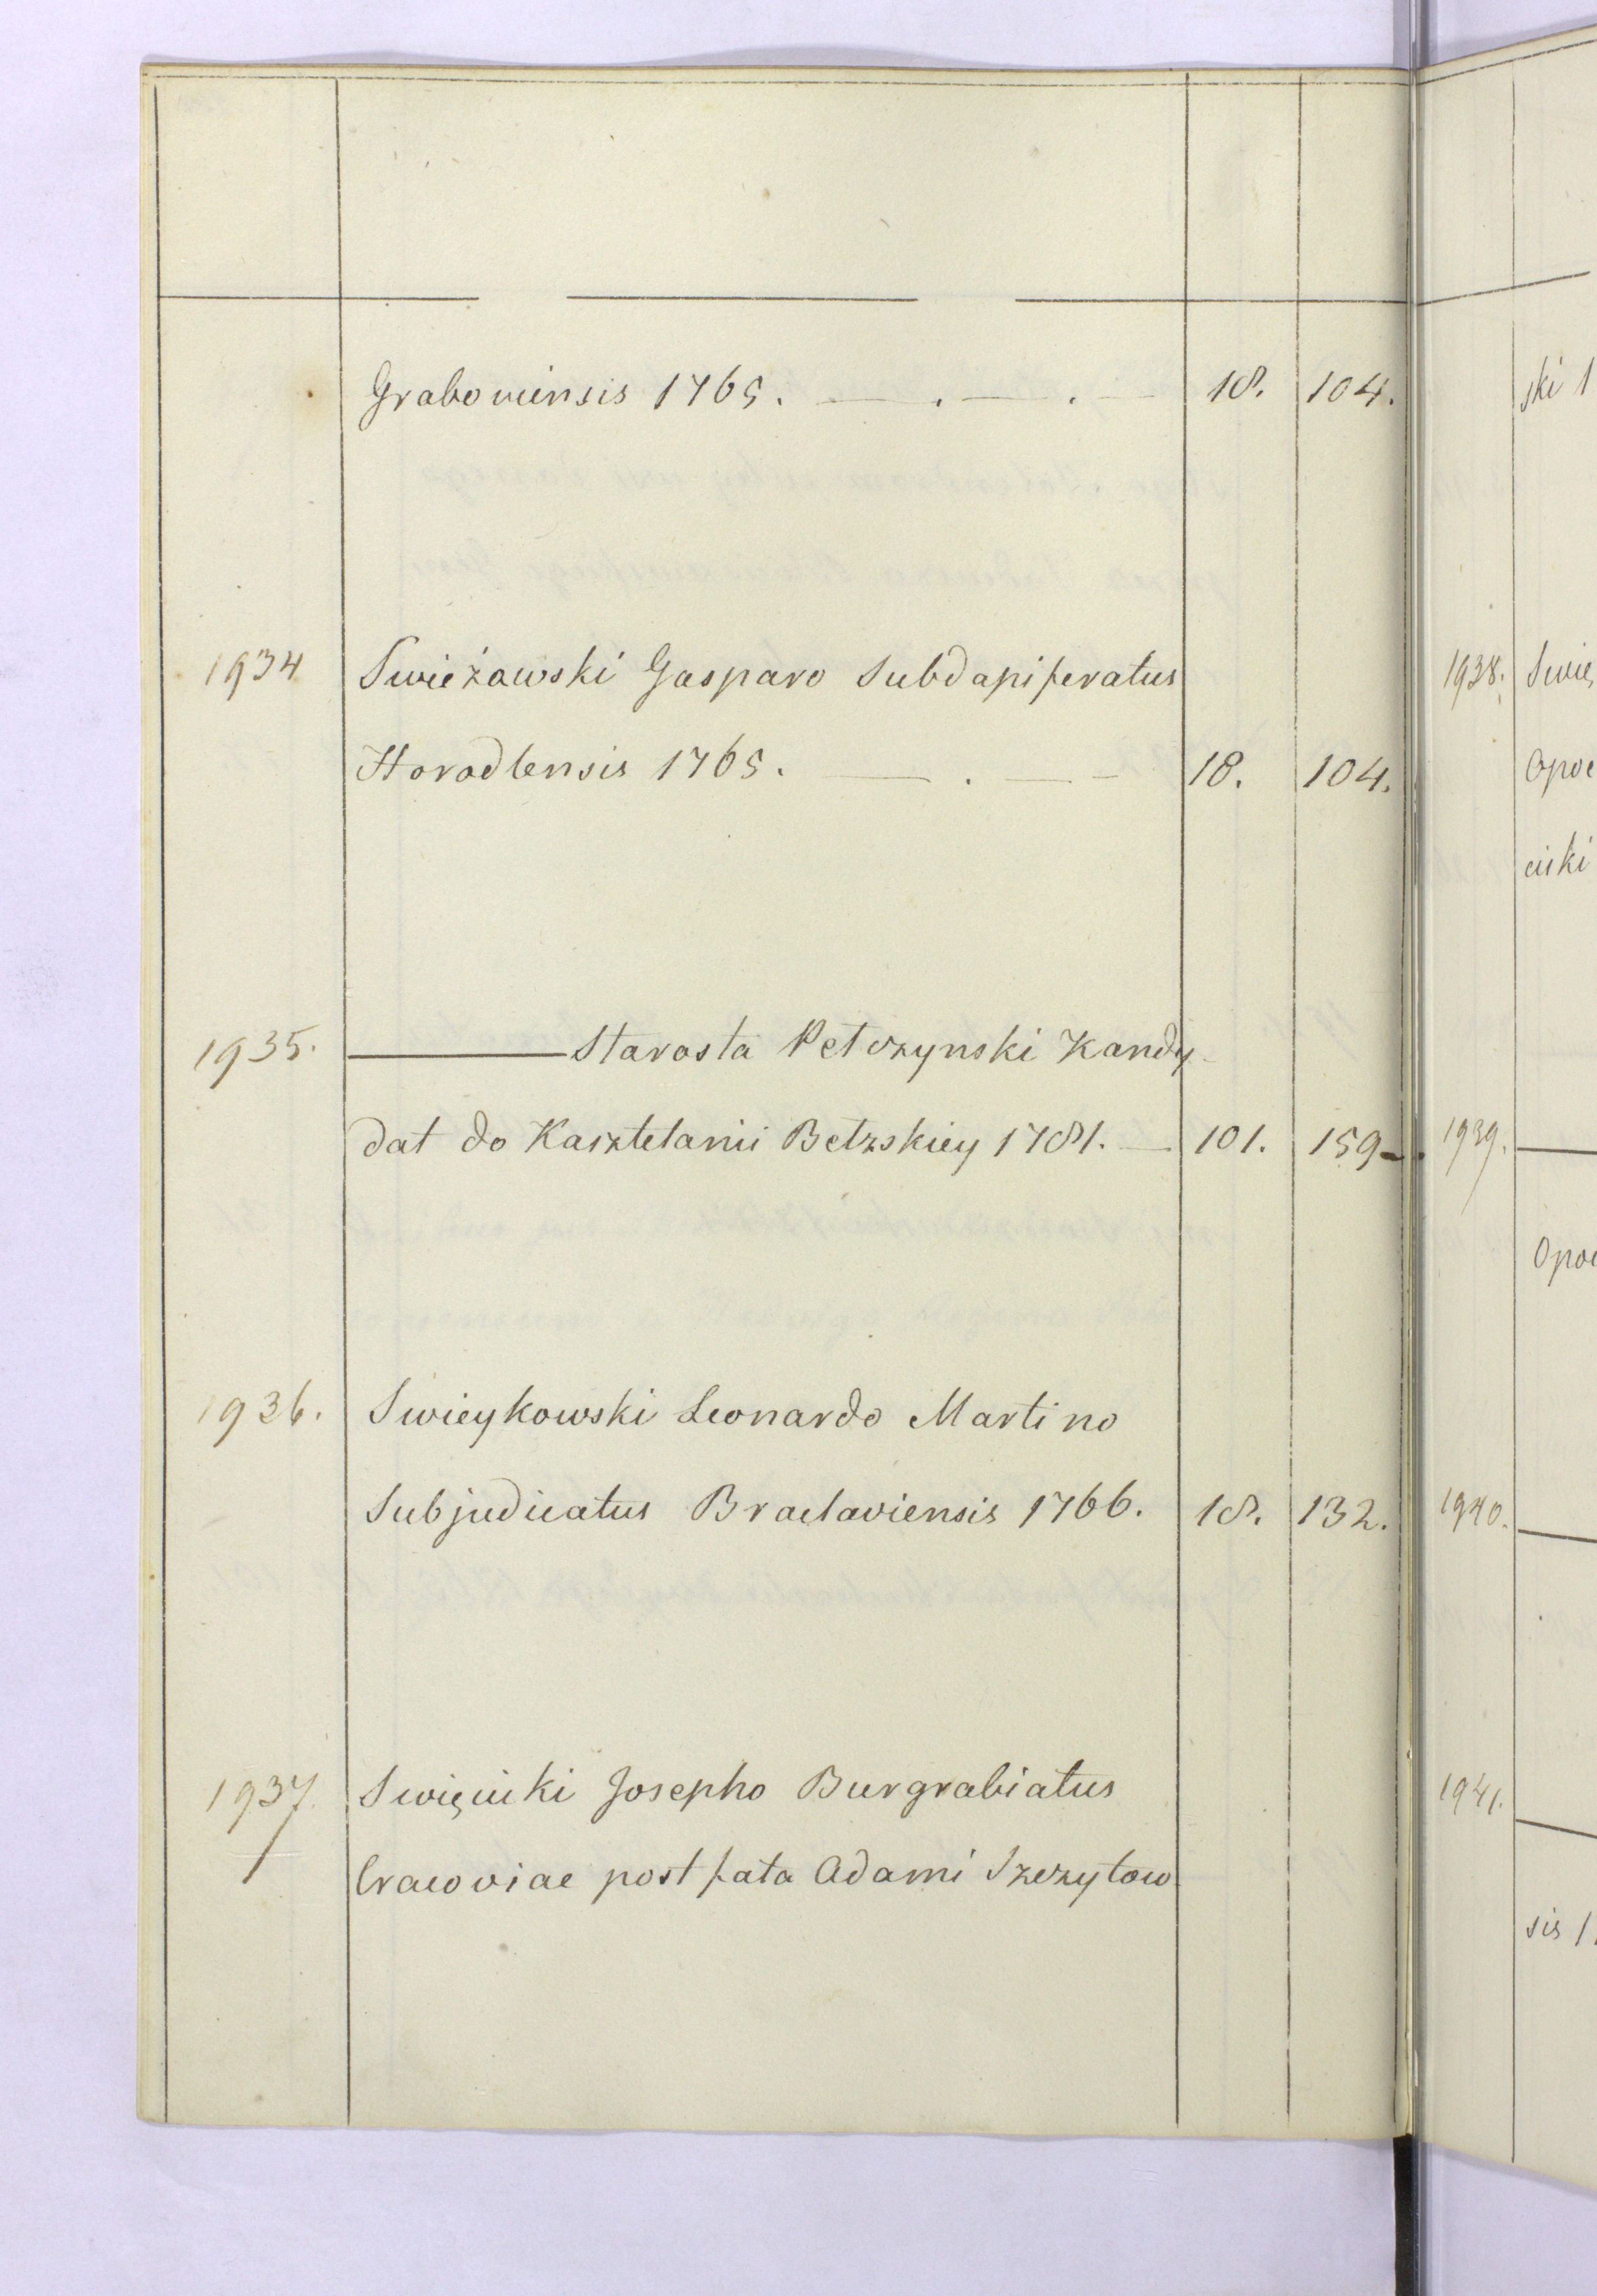 Graboviensis 1765. — . — . — 18. 104.
1934 Swieżawski Gasparo Subdapiferatus
Horodlensis 1765. — . — 18. 104.
1935. ——— Starosta Petczynski Kandy-
dat do Kasztelanii Betzskiey 1781. — 101. 159.
1936. Swieykowski Leonardo Martino
Subjudicatus Braclaviensis 1766. 18. 132.
1937. Swięcicki Josepho Burgrabiatus
Cracoviae post fata Adami Szczytow
ski 1
1938. Swię
Opoc
cicki
1939. —
Opoc
1940. —
1941. —
sis 1